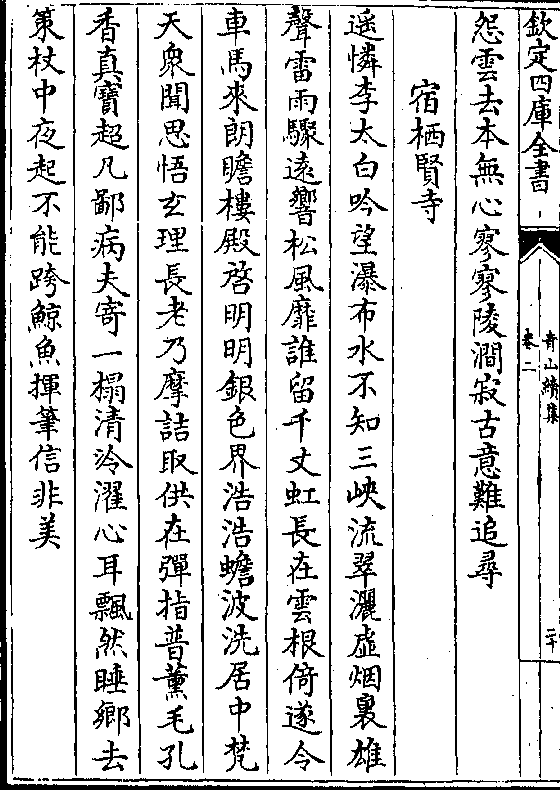 欽定四庫全書
青山續集
卷二
二十
怨雲去本無心寥寥陵澗寂古意難追尋
宿栖賢寺
遥憐李太白吟望瀑布水不知三峽流翠灑虛烟裏雄
聲雷雨驟遠響松風靡誰留千丈虹長在雲根倚遂令
車馬來朗瞻樓殿啓明明銀色界浩浩蟾波洗居中梵
天衆聞思悟玄理長老乃摩詰取供在彈指普薰毛孔
香真寶超凡鄙病夫寄一榻清泠濯心耳飄然睡鄉去
策杖中夜起不能跨鯨魚揮筆信非美